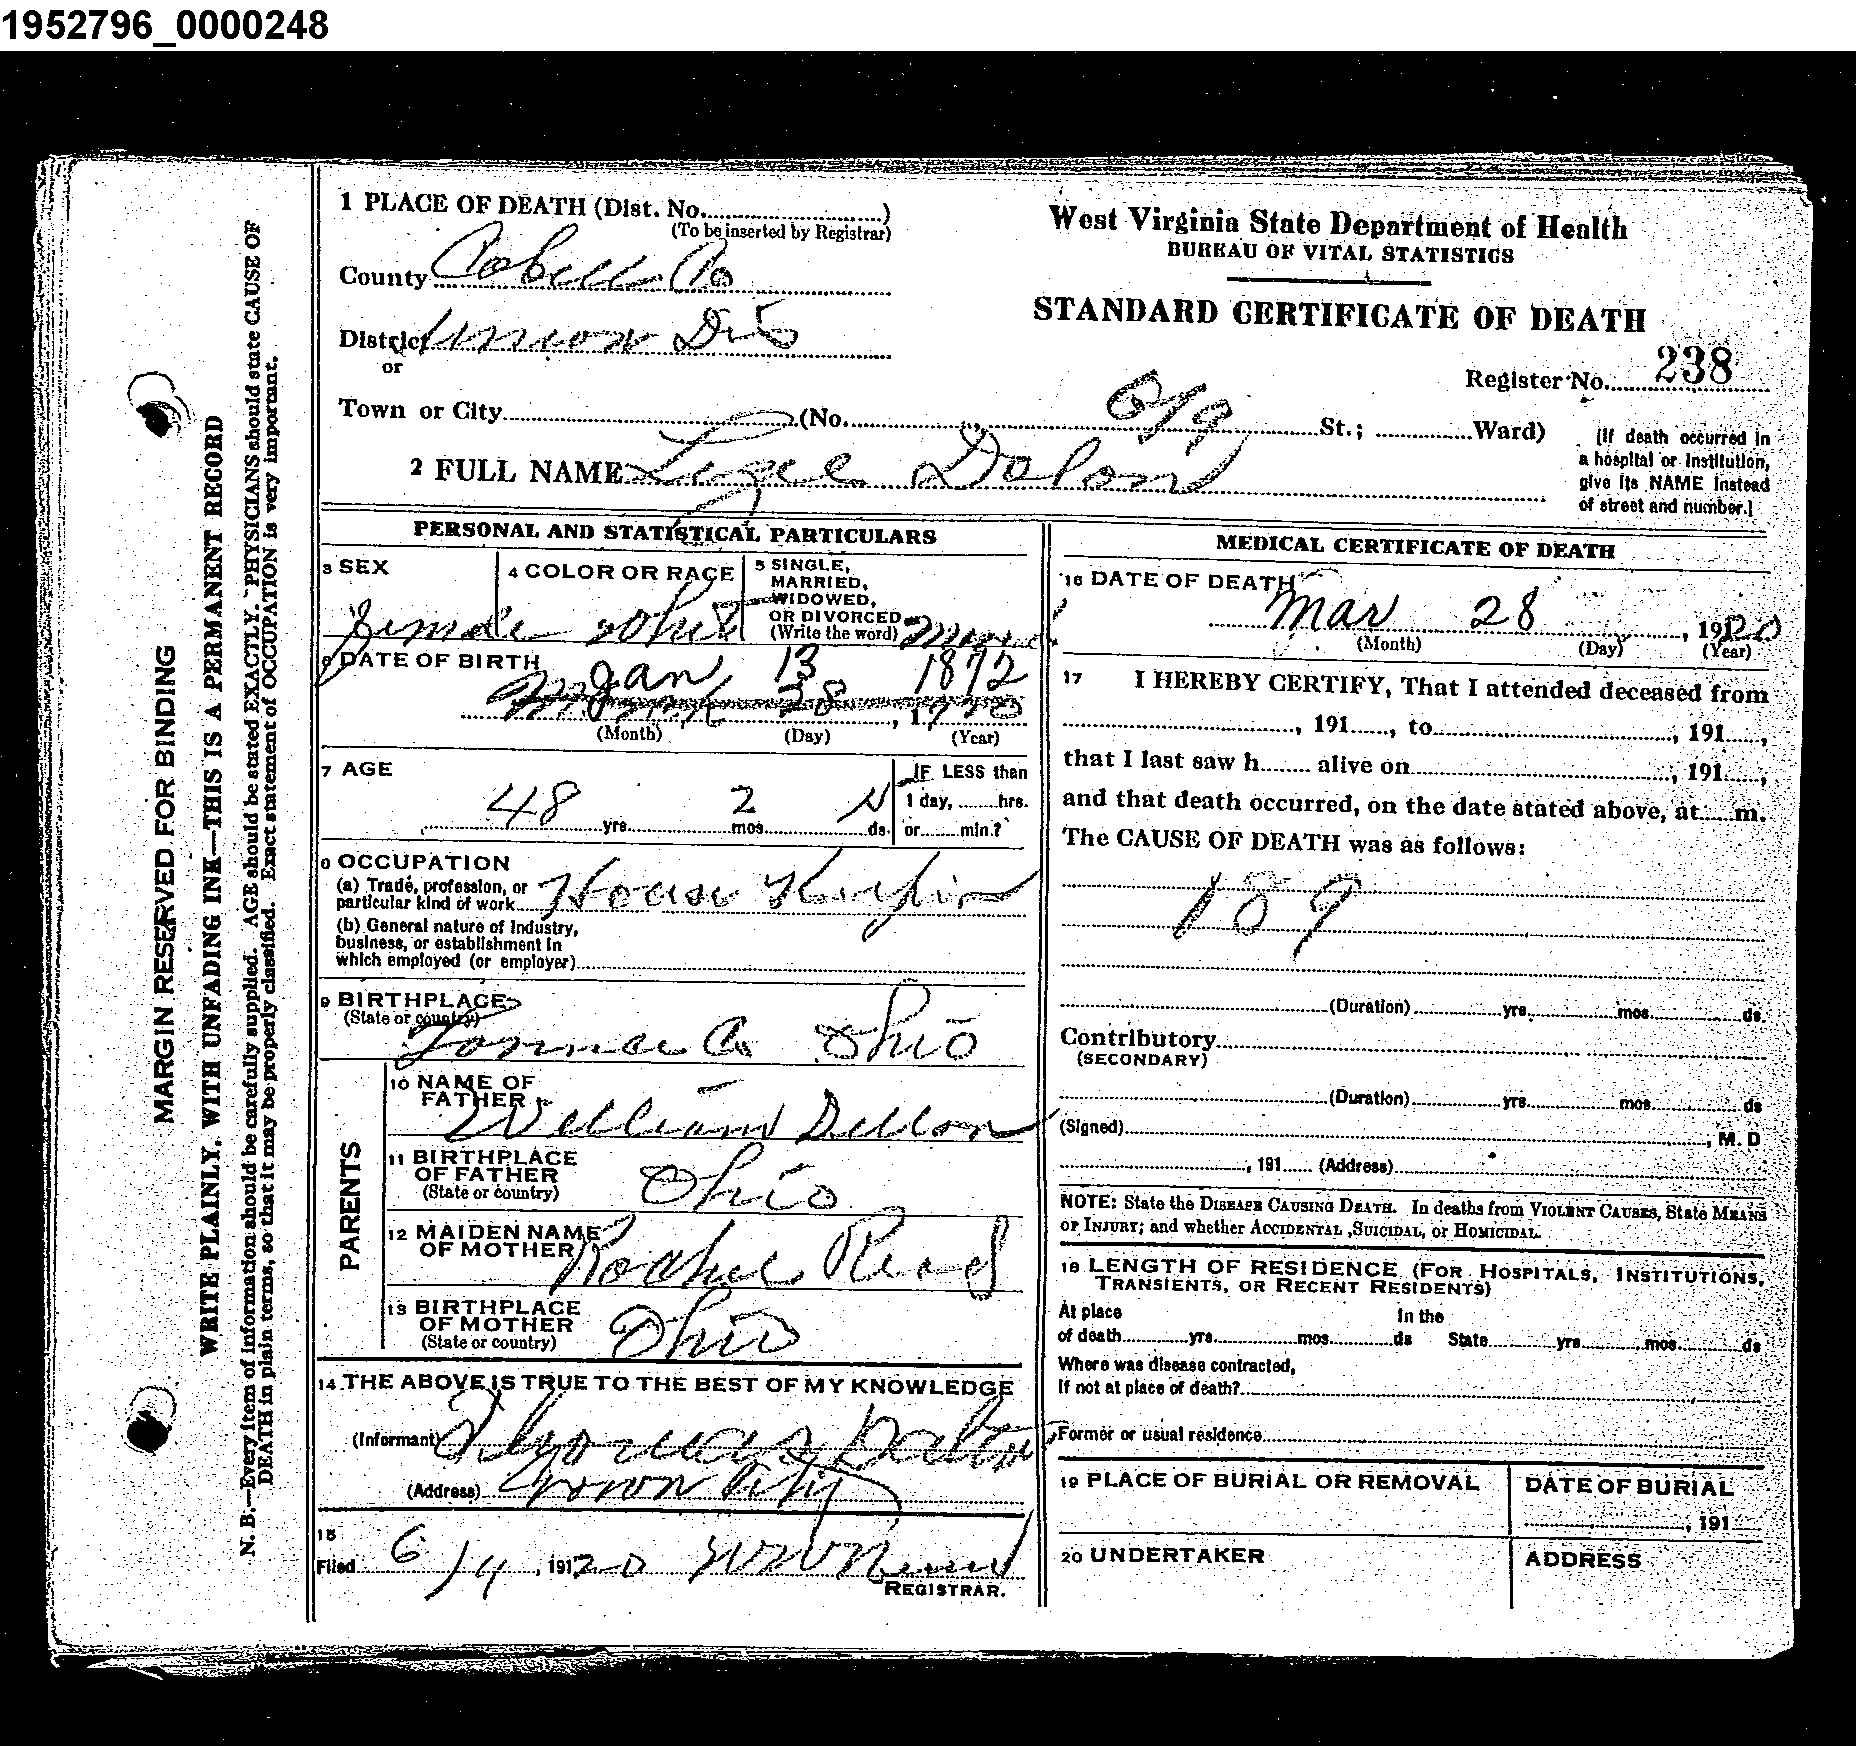 1952796_0000248
MARGIN RESERVED FOR BINDING
WRITE PLAINLY, WITH UNFADING INK—THIS IS A PERMANENT RECORD
N. B.—Every item of information should be carefully supplied. AGE should be stated EXACTLY. PHYSICIANS should state CAUSE OF
DEATH in plain terms, so that it may be properly classified. Exact statement of OCCUPATION is very important.
1 PLACE OF DEATH (Dist. No. )
(To be inserted by Registrar)
County Cabell Co
District Union Dis
or
Town or City (No. St.; Ward)
West Virginia State Department of Health
BUREAU OF VITAL STATISTICS
STANDARD CERTIFICATE OF DEATH
Register No. 238
(If death occurred in
a hospital or institution,
give its NAME instead
of street and number.)
2 FULL NAME
PERSONAL AND STATISTICAL PARTICULARS
3 SEX
Female
4 COLOR OR RACE
White
5 SINGLE,
MARRIED,
WIDOWED,
OR DIVORCED
(Write the word)
6 DATE OF BIRTH
Jan 13 1872
(Month) (Day) (Year)
7 AGE
48 yrs. 2 mos. ds.
IF LESS than
1 day, hrs.
or min.?
8 OCCUPATION
(a) Trade, profession, or
particular kind of work House
(b) General nature of industry,
business, or establishment in
which employed (or employer)
9 BIRTHPLACE
(State or country)
Co Ohio
PARENTS
10 NAME OF
FATHER William Dillon
11 BIRTHPLACE
OF FATHER
(State or country) Ohio
12 MAIDEN NAME
OF MOTHER Rachel Read
13 BIRTHPLACE
OF MOTHER
(State or country) Ohio
14 THE ABOVE IS TRUE TO THE BEST OF MY KNOWLEDGE
(Informant) Thomas
(Address)
15
Filed 6/4, 1920
REGISTRAR.
MEDICAL CERTIFICATE OF DEATH
16 DATE OF DEATH
Mar 28, 1920
(Month) (Day) (Year)
17 I HEREBY CERTIFY, That I attended deceased from
, 191 , to , 191 ,
that I last saw h alive on , 191 ,
and that death occurred, on the date stated above, at m.
The CAUSE OF DEATH was as follows:
189
(Duration) yrs. mos. ds.
Contributory
(SECONDARY)
(Duration) yrs. mos. ds
(Signed) , M. D
, 191 (Address)
NOTE: State the DISEASE CAUSING DEATH. In deaths from VIOLENT CAUSES, State MEANS
OF INJURY; and whether ACCIDENTAL, SUICIDAL, or HOMICIDAL.
18 LENGTH OF RESIDENCE (FOR HOSPITALS, INSTITUTIONS,
TRANSIENTS, OR RECENT RESIDENTS)
At place In the
of death yrs. mos. ds State yrs. mos. ds
Where was disease contracted,
If not at place of death?
Former or usual residence
19 PLACE OF BURIAL OR REMOVAL
DATE OF BURIAL
, 191
20 UNDERTAKER
ADDRESS